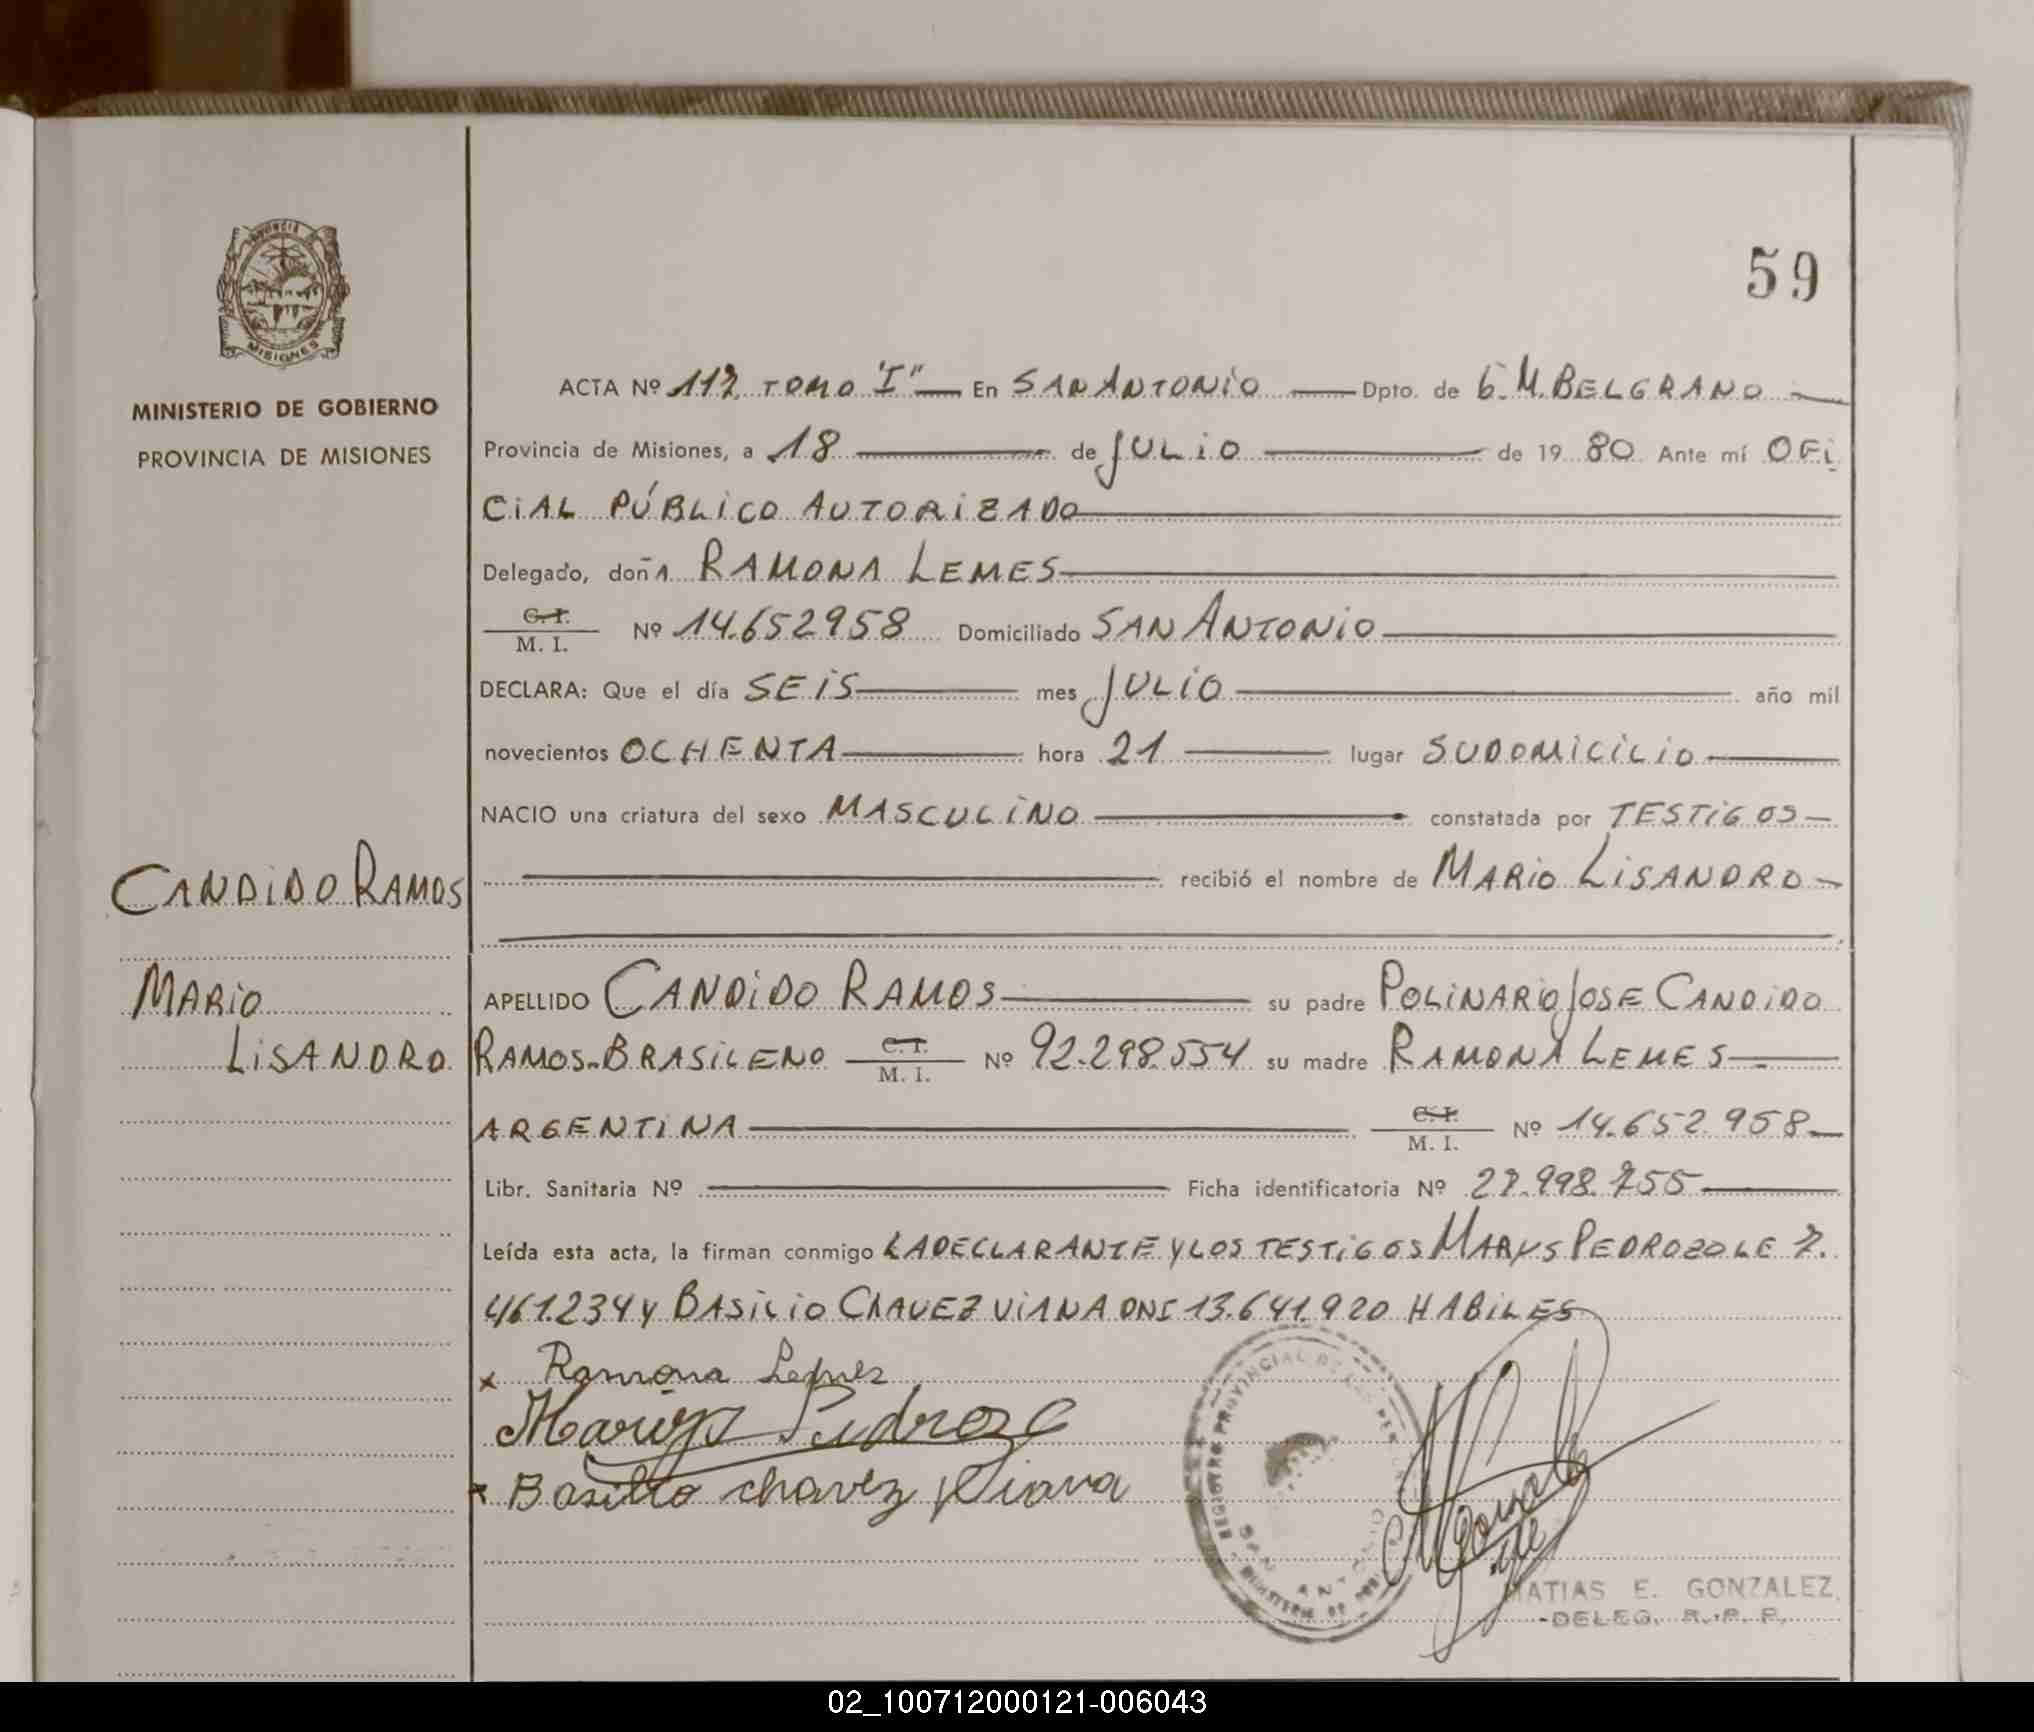 59
MISIONES
MINISTERIO DE GOBIERNO
PROVINCIA DE MISIONES
ACTA Nº 117 TOMO "I" En SAN ANTONIO Dpto. de G. M. BELGRANO
Provincia de Misiones, a 18 de JULIO de 19 80 Ante mí OFI
CIAL PÚBLICO AUTORIZADO
Delegado, doñA RAMONA LEMES
C.I. M. I. Nº 14.652958 Domiciliado SAN ANTONIO
DECLARA: Que el día SEIS mes JULIO año mil
novecientos OCHENTA hora 21 lugar SU DOMICILIO
NACIO una criatura del sexo MASCULINO constatada por TESTIGOS
recibió el nombre de MARIO LISANDRO
CANDIDO RAMOS
MARIO
LISANDRO
APELLIDO CANDIDO RAMOS su padre POLINARIO JOSE CANDIDO
RAMOS-BRASILENO C.I. M. I. Nº 92.298.554 su madre RAMONA LEMES
ARGENTINA C.I. M. I. Nº 14.652.958
Libr. Sanitaria Nº Ficha identificatoria Nº 27.998.755
Leída esta acta, la firman conmigo LA DECLARANTE Y LOS TESTIGOS MARYS PEDROZO LE 7.
461.234 y BASILIO CHAVEZ VIANA DNI 13.641.920 HABILES
x Ramona Lemes
Pedrozo
x Basilio chavez Viana
REGISTRO PROVINCIAL DE LAS PER
SAN ANTONIO
MINISTERIO DE
MATIAS E. GONZALEZ
-DELEG. R. P. P.
02_100712000121-006043